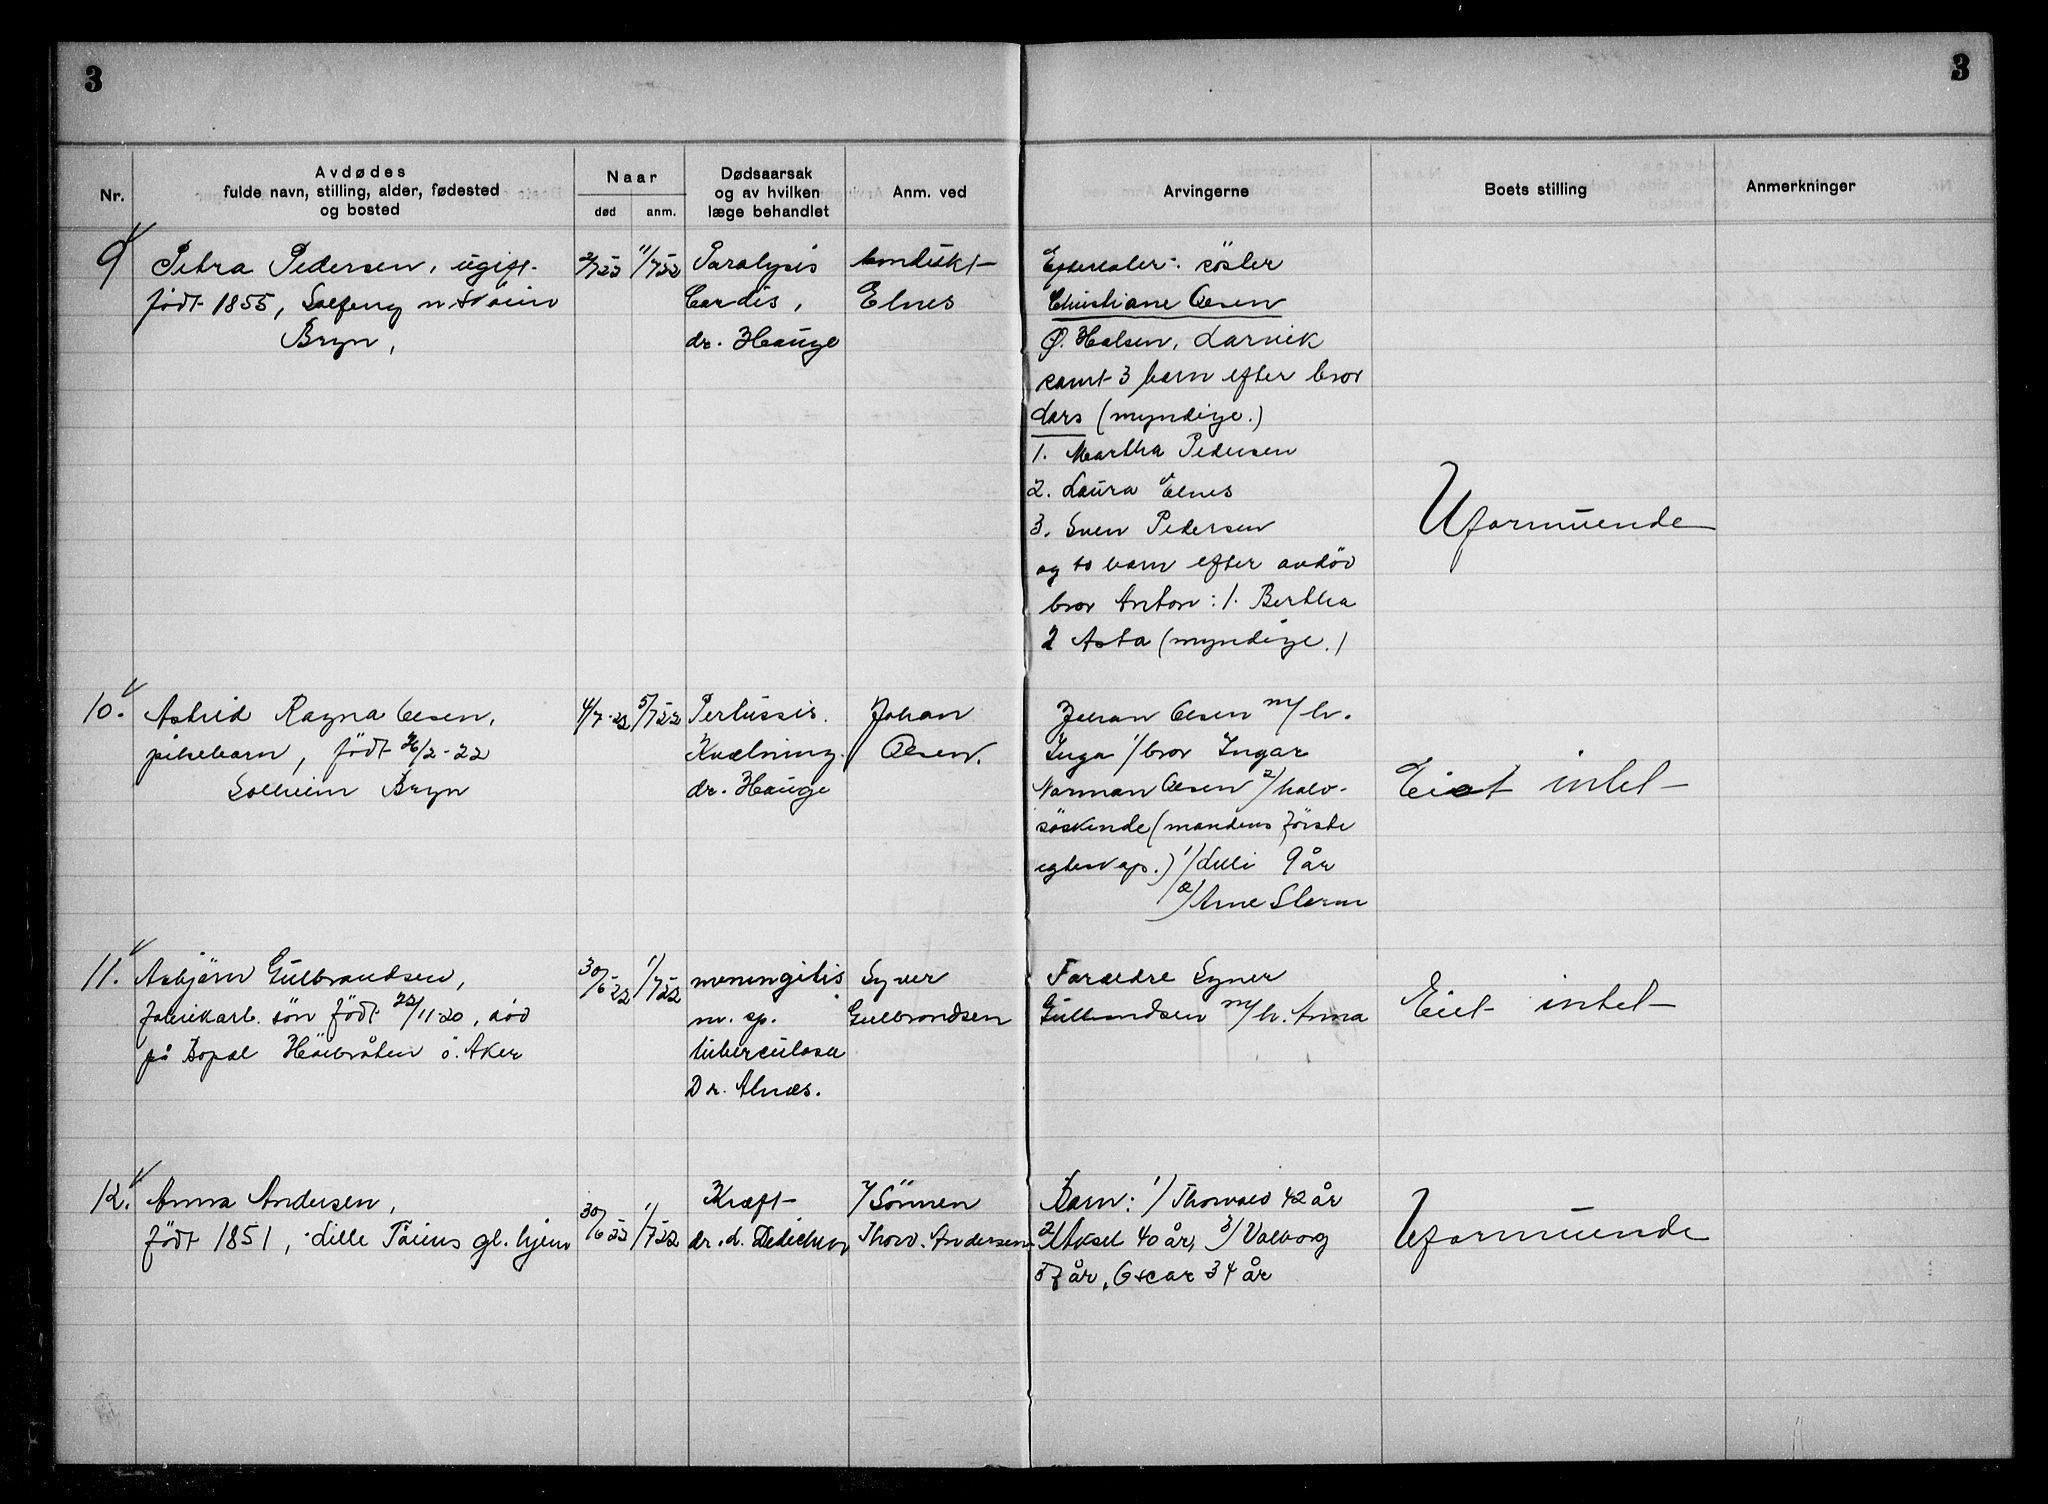 3
3
Nr.
Avdødes
fulde navn, stilling, alder, fødested
og bosted
Naar
død
anm.
Dødsaarsak
og av hvilken
læge behandlet
Anm. ved
Arvingerne
Boets stilling
Anmerkninger
9
Petra Pedersen, ugift
født 1855, Solfeng
Bryn,
11/7 22
Paralysis
Cordis,
dr. Hauge
Elnes
Efterlater: søster
Christiane Olsen
Ø. Halsen, Larvik
samt 3 barn efter bror
Lars (myndige.)
1. Martha Pedersen
2. Laura Elnes
3. Sven Pedersen
og to barn efter avdød
bror Anton: 1. Bertha
2 Asta (myndige.)
Uformuende
10.
Astrid Ragna Olsen,
pikebarn, født 26/2-22
Solheim Bryn
4/7-22
5/7 22
Pertussis.
Kvælning.
dr. Hauge
Johan
Olsen.
Johan Olsen m/h.
Inga 1/ bror Ingar
Norman Olsen 2/ halv-
søskende (mandens første
egteskap.) 1/ Lilli 9 år
2/ Arne Storm
Eiet intet
11.
Asbjørn Gulbrandsen,
fabrikarb. søn født 22/11-20, død
på Bopæl Høibråten ø. Aker
30/6 22
1/7 22
meningitis
m. sp.
tuberculosa
Dr. Alnæs.
Syver
Gulbrandsen
Forældre Syver
Gulbrandsen m/h. Anna
Eiet intet
12.
Anna Andersen,
født 1851, Lille Tøiens gl. hjem
30/6 22
1/7 22
Kræft
dr. d. Dedichen
v/ Sønnen
Thorv. Andersen
Barn: 1/ Thorvald 42 år
2/ Aksel 40 år, 3/ Valborg
37 år, Oscar 34 år
Uformuende